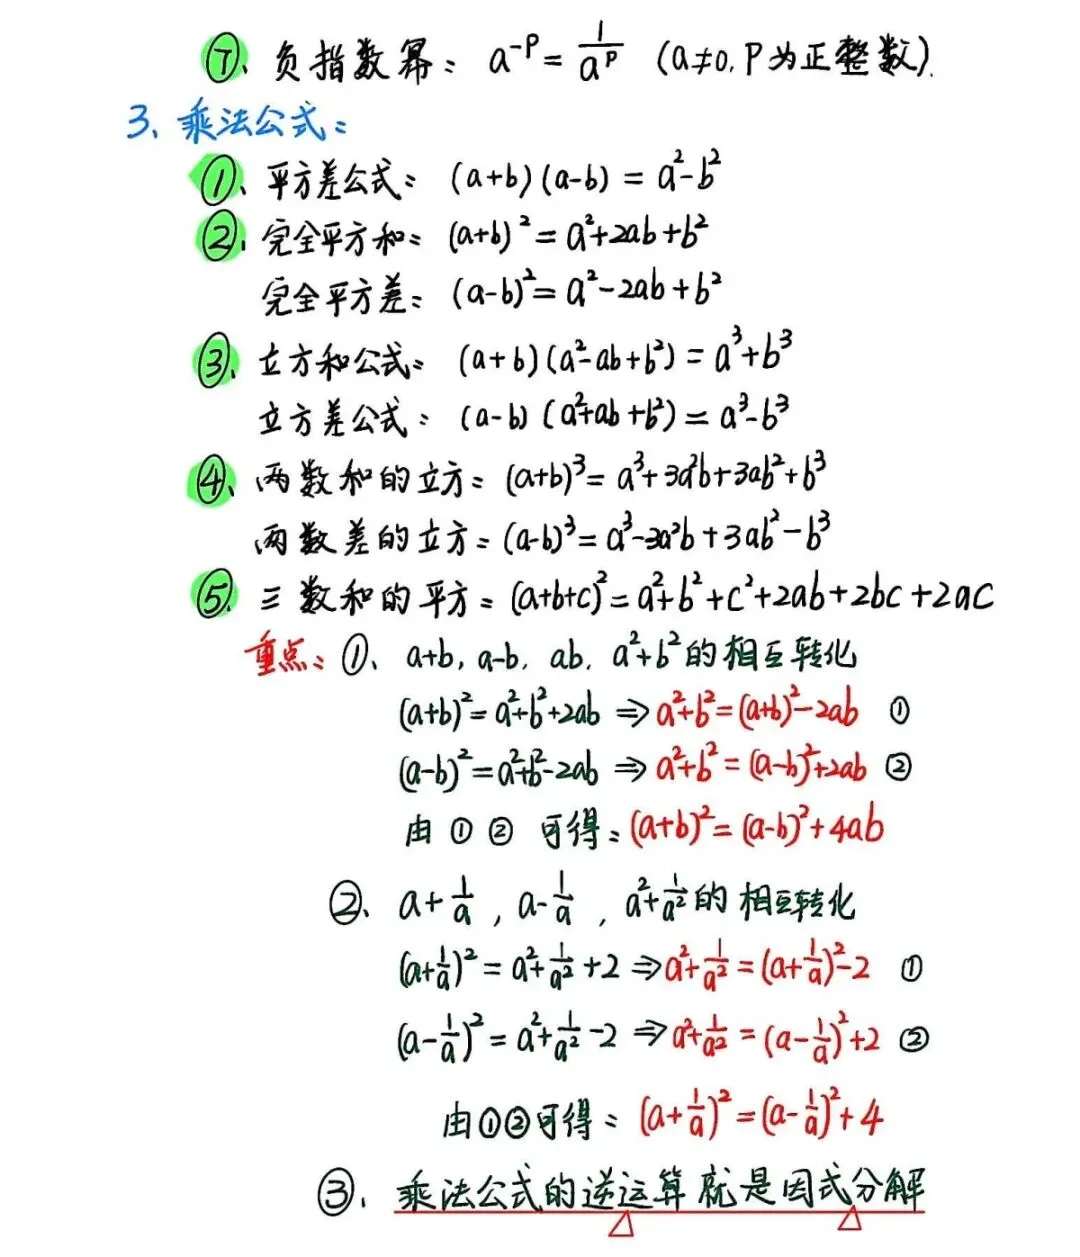 ⑦、负指数幂：a⁻ᵖ=1/aᵖ (a≠0, P为正整数).
3、乘法公式：
①、平方差公式：(a+b)(a-b)=a²-b²
②、完全平方和：(a+b)²=a²+2ab+b²
完全平方差：(a-b)²=a²-2ab+b²
③、立方和公式：(a+b)(a²-ab+b²)=a³+b³
立方差公式：(a-b)(a²+ab+b²)=a³-b³
④、两数和的立方：(a+b)³=a³+3a²b+3ab²+b³
两数差的立方：(a-b)³=a³-3a²b+3ab²-b³
⑤、三数和的平方：(a+b+c)²=a²+b²+c²+2ab+2bc+2ac
重点：①、a+b, a-b, ab, a²+b²的相互转化
(a+b)²=a²+b²+2ab ⇒ a²+b²=(a+b)²-2ab ①
(a-b)²=a²+b²-2ab ⇒ a²+b²=(a-b)²+2ab ②
由①②可得：(a+b)²=(a-b)²+4ab
②、a+1/a, a-1/a, a²+1/a²的相互转化
(a+1/a)²=a²+1/a²+2 ⇒ a²+1/a²=(a+1/a)²-2 ①
(a-1/a)²=a²+1/a²-2 ⇒ a²+1/a²=(a-1/a)²+2 ②
由①②可得：(a+1/a)²=(a-1/a)²+4
③、乘法公式的逆运算就是因式分解